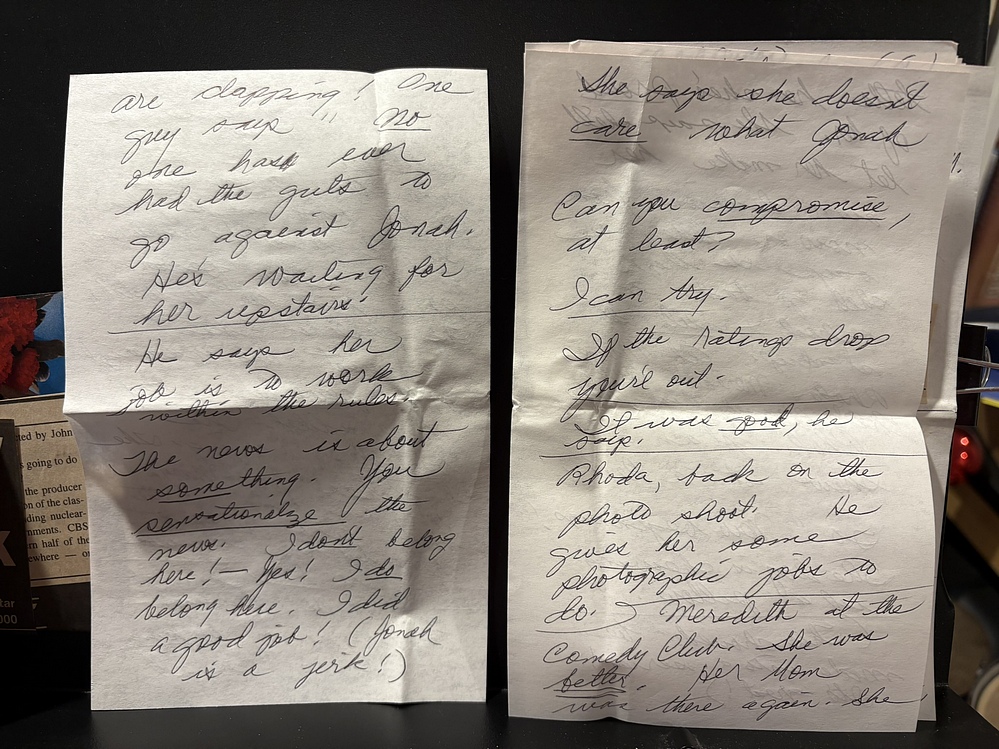 are clapping! One
guy says "No
one has ever
had the guts to
go against Jonah.
He's waiting for
her upstairs.
He says her
job is to work
within the rules.
The news is about
something. You
sensationalize the
news. I don't belong
here! — Yes! I do
belong here. I did
a good job! (Jonah
is a jerk!)
She says she doesn't
care what Jonah
Can you compromise,
at least?
I can try.
If the ratings drop
you're out.
It was good, he
says.
Rhoda, back on the
photo shoot. He
gives her some
photographic jobs to
do. Meredith at the
Comedy Club. She was
better. Her Mom
was there again. She
ted by John
s going to do
the producer
on of the clas-
ding nuclear-
nments. CBS
rn half of the
ewhere — o
X
tar
000